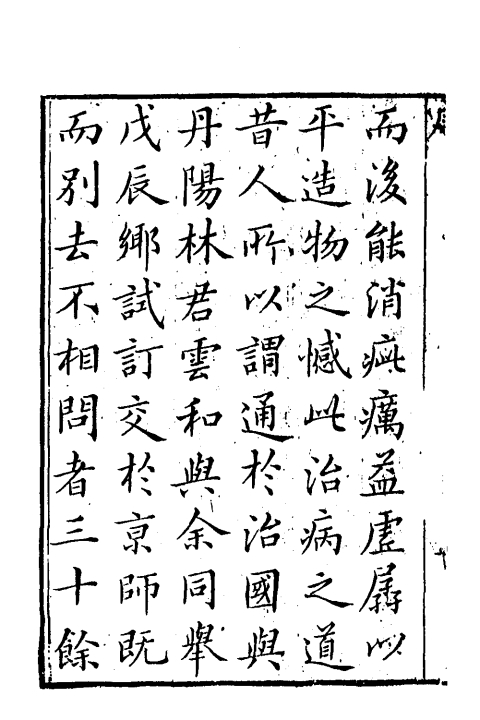 而後能消疵癘益虛孱以
平造物之憾此治病之道
昔人所以謂通於治國與
丹陽林君雲和與余同舉
戊辰鄉試訂交於京師既
而別去不相問者三十餘